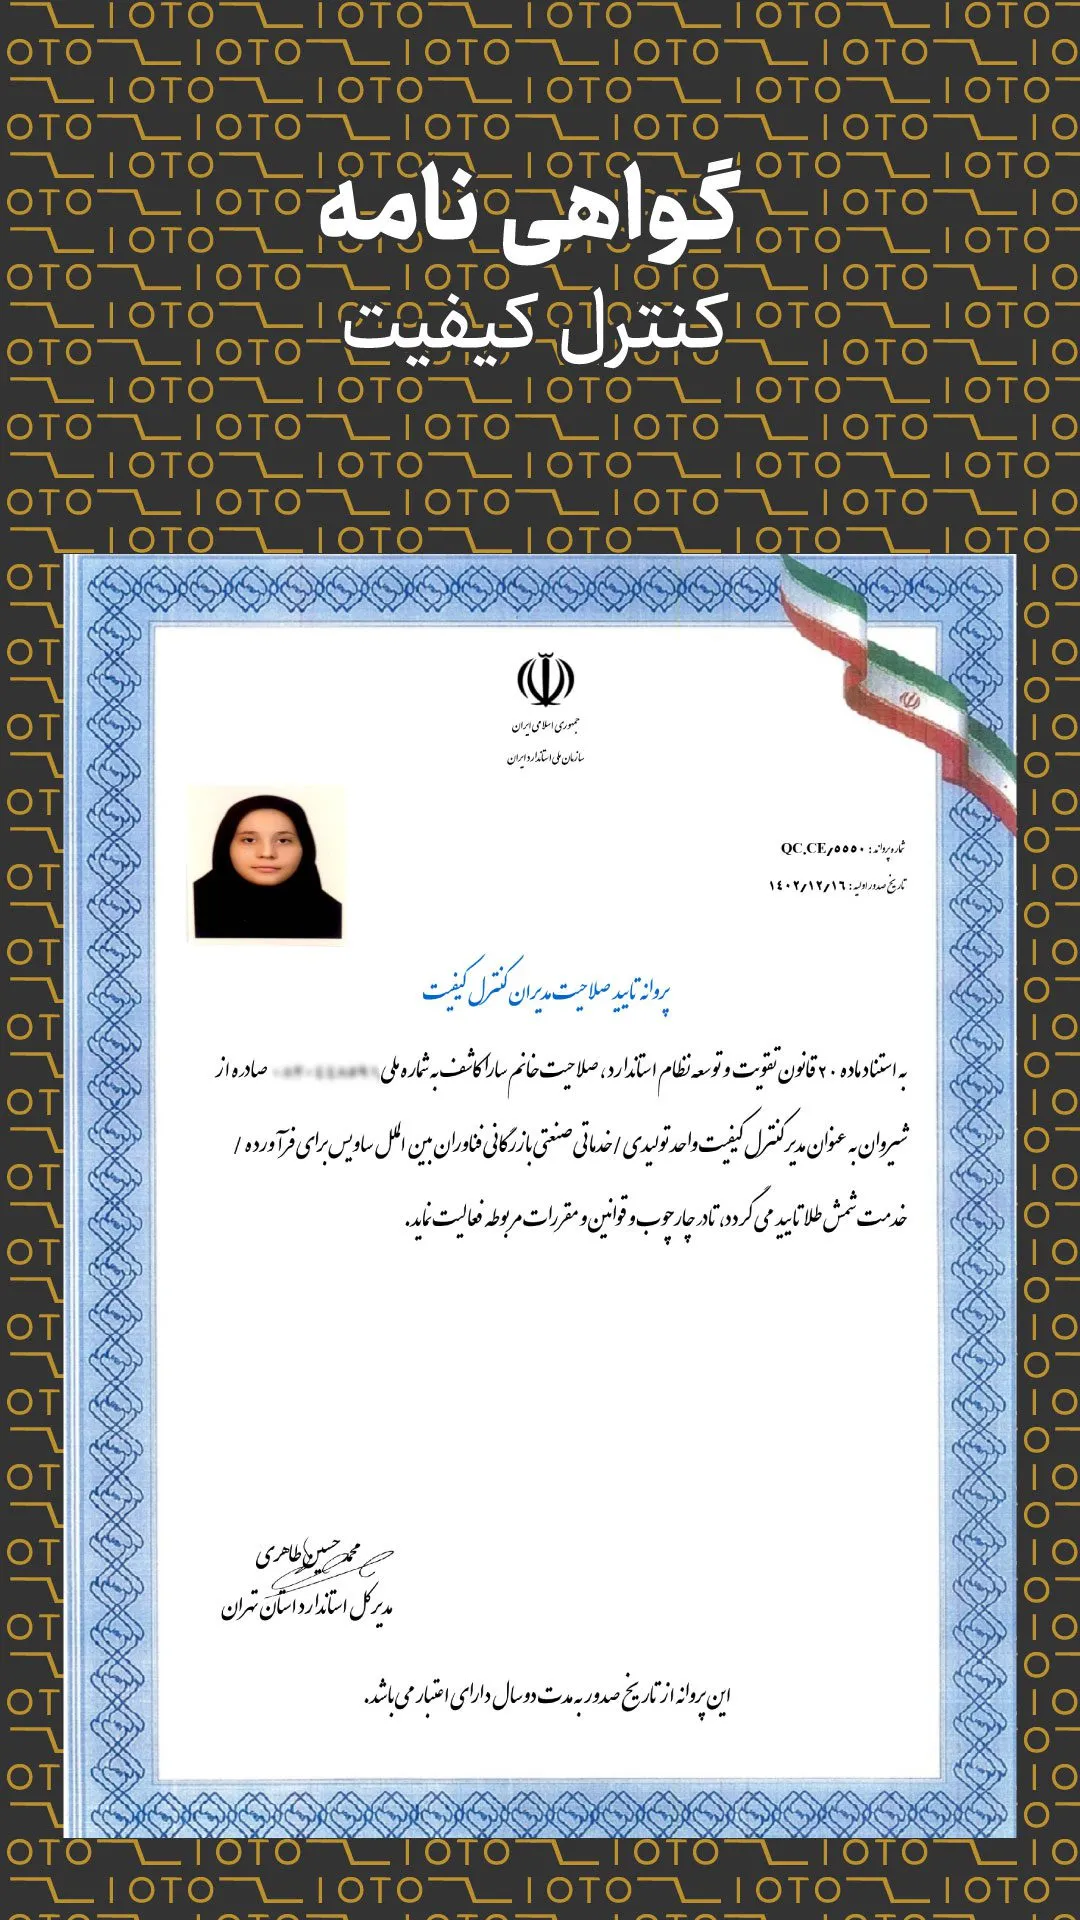 گواهی نامه
کنترل کیفیت
جمهوری اسلامی ایران
سازمان ملی استاندارد ایران
شماره پروانه : QC.CE/۵۵۵۰
تاریخ صدور اولیه : ۱۴۰۲/۱۲/۱۶
پروانه تایید صلاحیت مدیران کنترل کیفیت
به استناد ماده ۲۰ قانون تقویت و توسعه نظام استاندارد، صلاحیت خانم سارا کاشف به شماره ملی صادره از
شیروان به عنوان مدیر کنترل کیفیت واحد تولیدی / خدماتی صنعتی بازرگانی فناوران بین الملل ساویس برای فرآورده /
خدمت شمش طلا تایید می گردد، تا در چارچوب و قوانین و مقررات مربوطه فعالیت نماید.
محمد حسین طاهری
مدیرکل استاندارد استان تهران
این پروانه از تاریخ صدور به مدت دو سال دارای اعتبار می باشد.